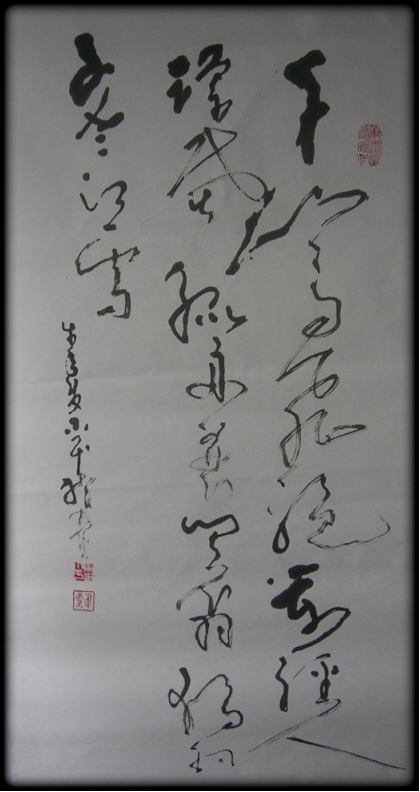 千山鸟飞绝万径人
踪灭孤舟蓑笠翁独钓
寒江雪